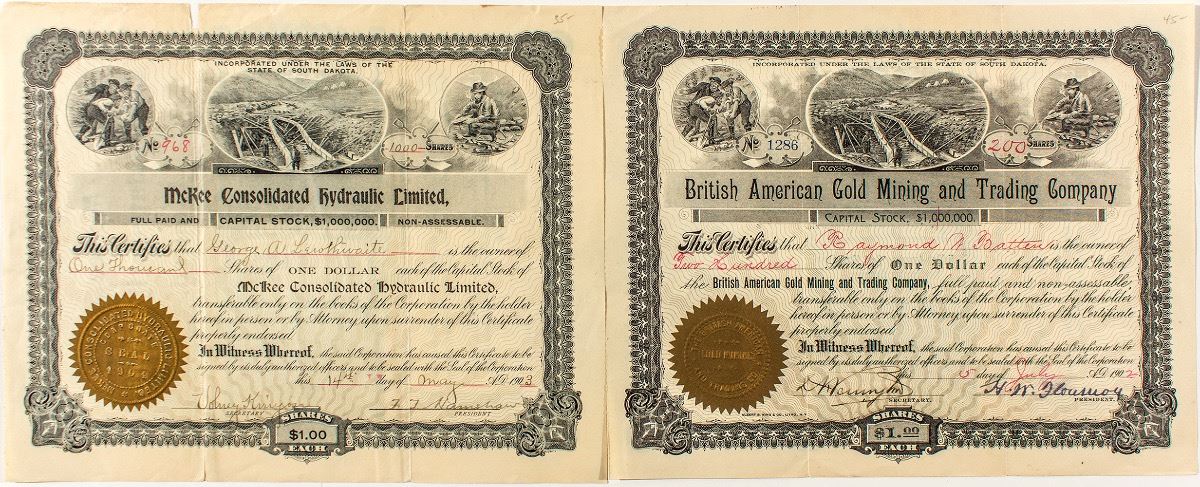 35-
INCORPORATED UNDER THE LAWS OF THE
STATE OF SOUTH DAKOTA.
No 968
1000 SHARES
McKee Consolidated Hydraulic Limited,
FULL PAID AND CAPITAL STOCK, $1,000,000. NON-ASSESSABLE.
This Certifies that George A is the owner of
One Thousand Shares of ONE DOLLAR each of the Capital Stock of
McKee Consolidated Hydraulic Limited,
transferable only on the books of the Corporation by the holder
hereof in person or by Attorney upon surrender of this Certificate
properly endorsed.
In Witness Whereof, the said Corporation has caused this Certificate to be
signed by its duly authorized officers and to be sealed with the Seal of the Corporation
this 14th day of May A.D. 1903
SECRETARY PRESIDENT
CONSOLIDATED HYDRAULIC LIMITED
SEAL
SHARES
$1.00
EACH
45-
INCORPORATED UNDER THE LAWS OF THE STATE OF SOUTH DAKOTA.
No 1286
200 SHARES
British American Gold Mining and Trading Company
CAPITAL STOCK, $1,000,000.
This Certifies that Raymond W. Batten is the owner of
Two Hundred Shares of One Dollar each of the Capital Stock of
the British American Gold Mining and Trading Company, full paid and non-assessable,
transferable only on the books of the Corporation by the holder
hereof in person or by Attorney upon surrender of this Certificate
properly endorsed.
In Witness Whereof, the said Corporation has caused this Certificate to be
signed by its duly authorized officers and to be sealed with the Seal of the Corporation
this 5 day of July A.D. 1902
SECRETARY. PRESIDENT.
GOLD MINING
AND TRADING
SHARES
$1.00
EACH